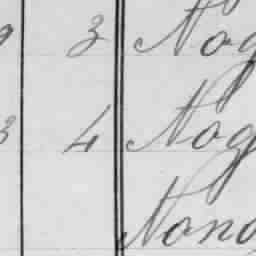 3 Nog
3 4 Nog
Nona